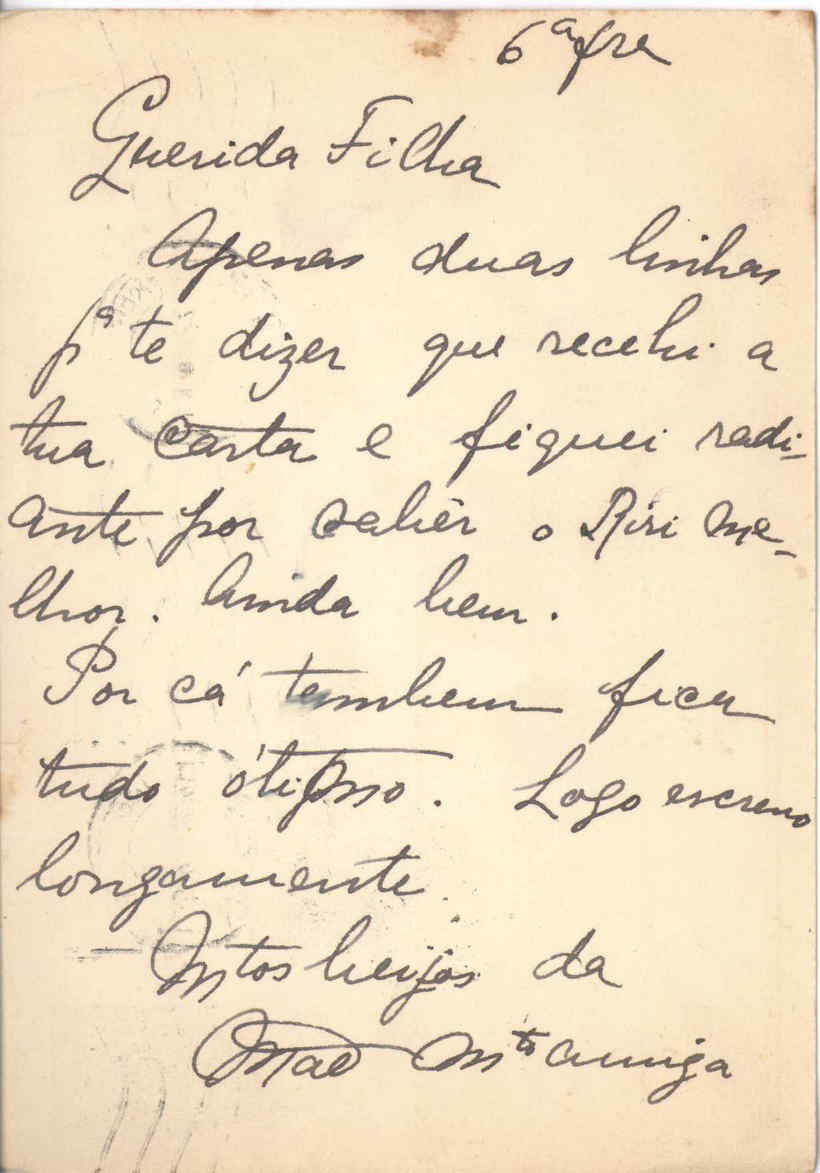 6ª fra
Querida Filha
Apenas duas linhas
pª te dizer que recebi a
tua carta e fiquei radi-
ante por saber o Riri me-
lhor. Ainda bem.
Por cá tambem fica
tudo ótimo. Logo escrevo
longamente.
Mtos beijos da
Mãe Mtº amiga